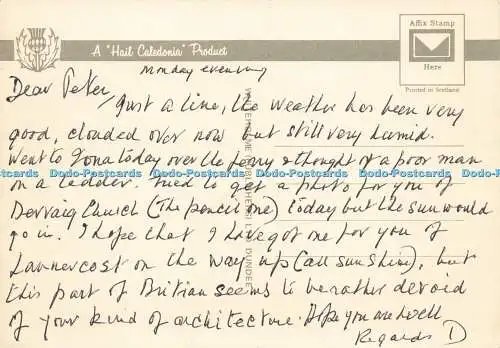 A "Hail Caledonia" Product
Affix Stamp
Here
Printed in Scotland
Monday evening
Dear Peter,
Just a line, the weather has been very
good, clouded over now but still very humid.
Went to Iona today over the ferry & thought of a poor man
on a ladder. Tried to get a photo for you of
Dervaig Church (The pencil one) today but the sun would
go in. I hope that I have got one for you of
Lannercost on the way up (all sunshine), but
this part of Britian seems to be rather devoid
of your kind of architecture. Hope you are well
Regards D
WHITEHOLME PUBLISHERS LTD DUNDEE
Dodo-Postcards Dodo-Postcards Dodo-Postcards Dodo-Postcards Dodo-Postcards Dodo-Postcards